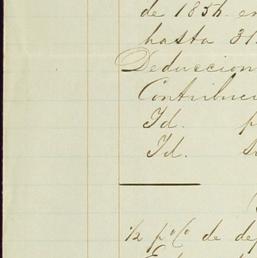 de 1854. en
hasta 31.
Deduccion
Contribuci
Id. p
Id. s
½ p% de de